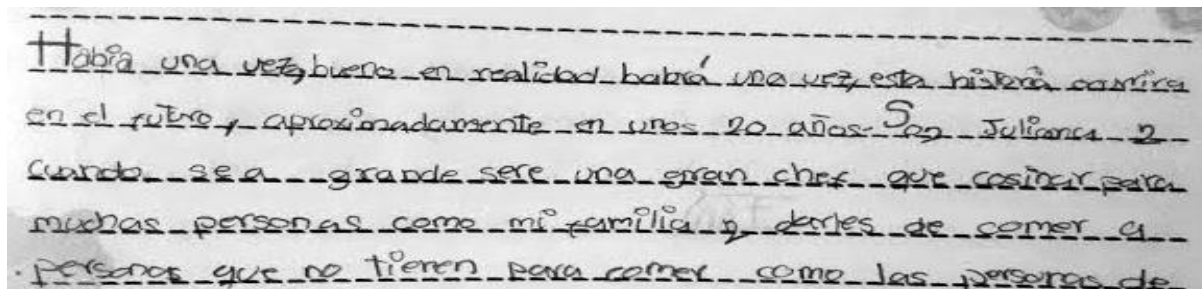 Había una vez, bueno en realidad habrá una vez, esta historia
en el futuro, aproximadamente en unos 20 años. Soy Juliana
cuando sea grande sere una gran chef que cosinar para
muchas personas como mi familia y darles de comer a
personas que no tienen para comer como las personas de